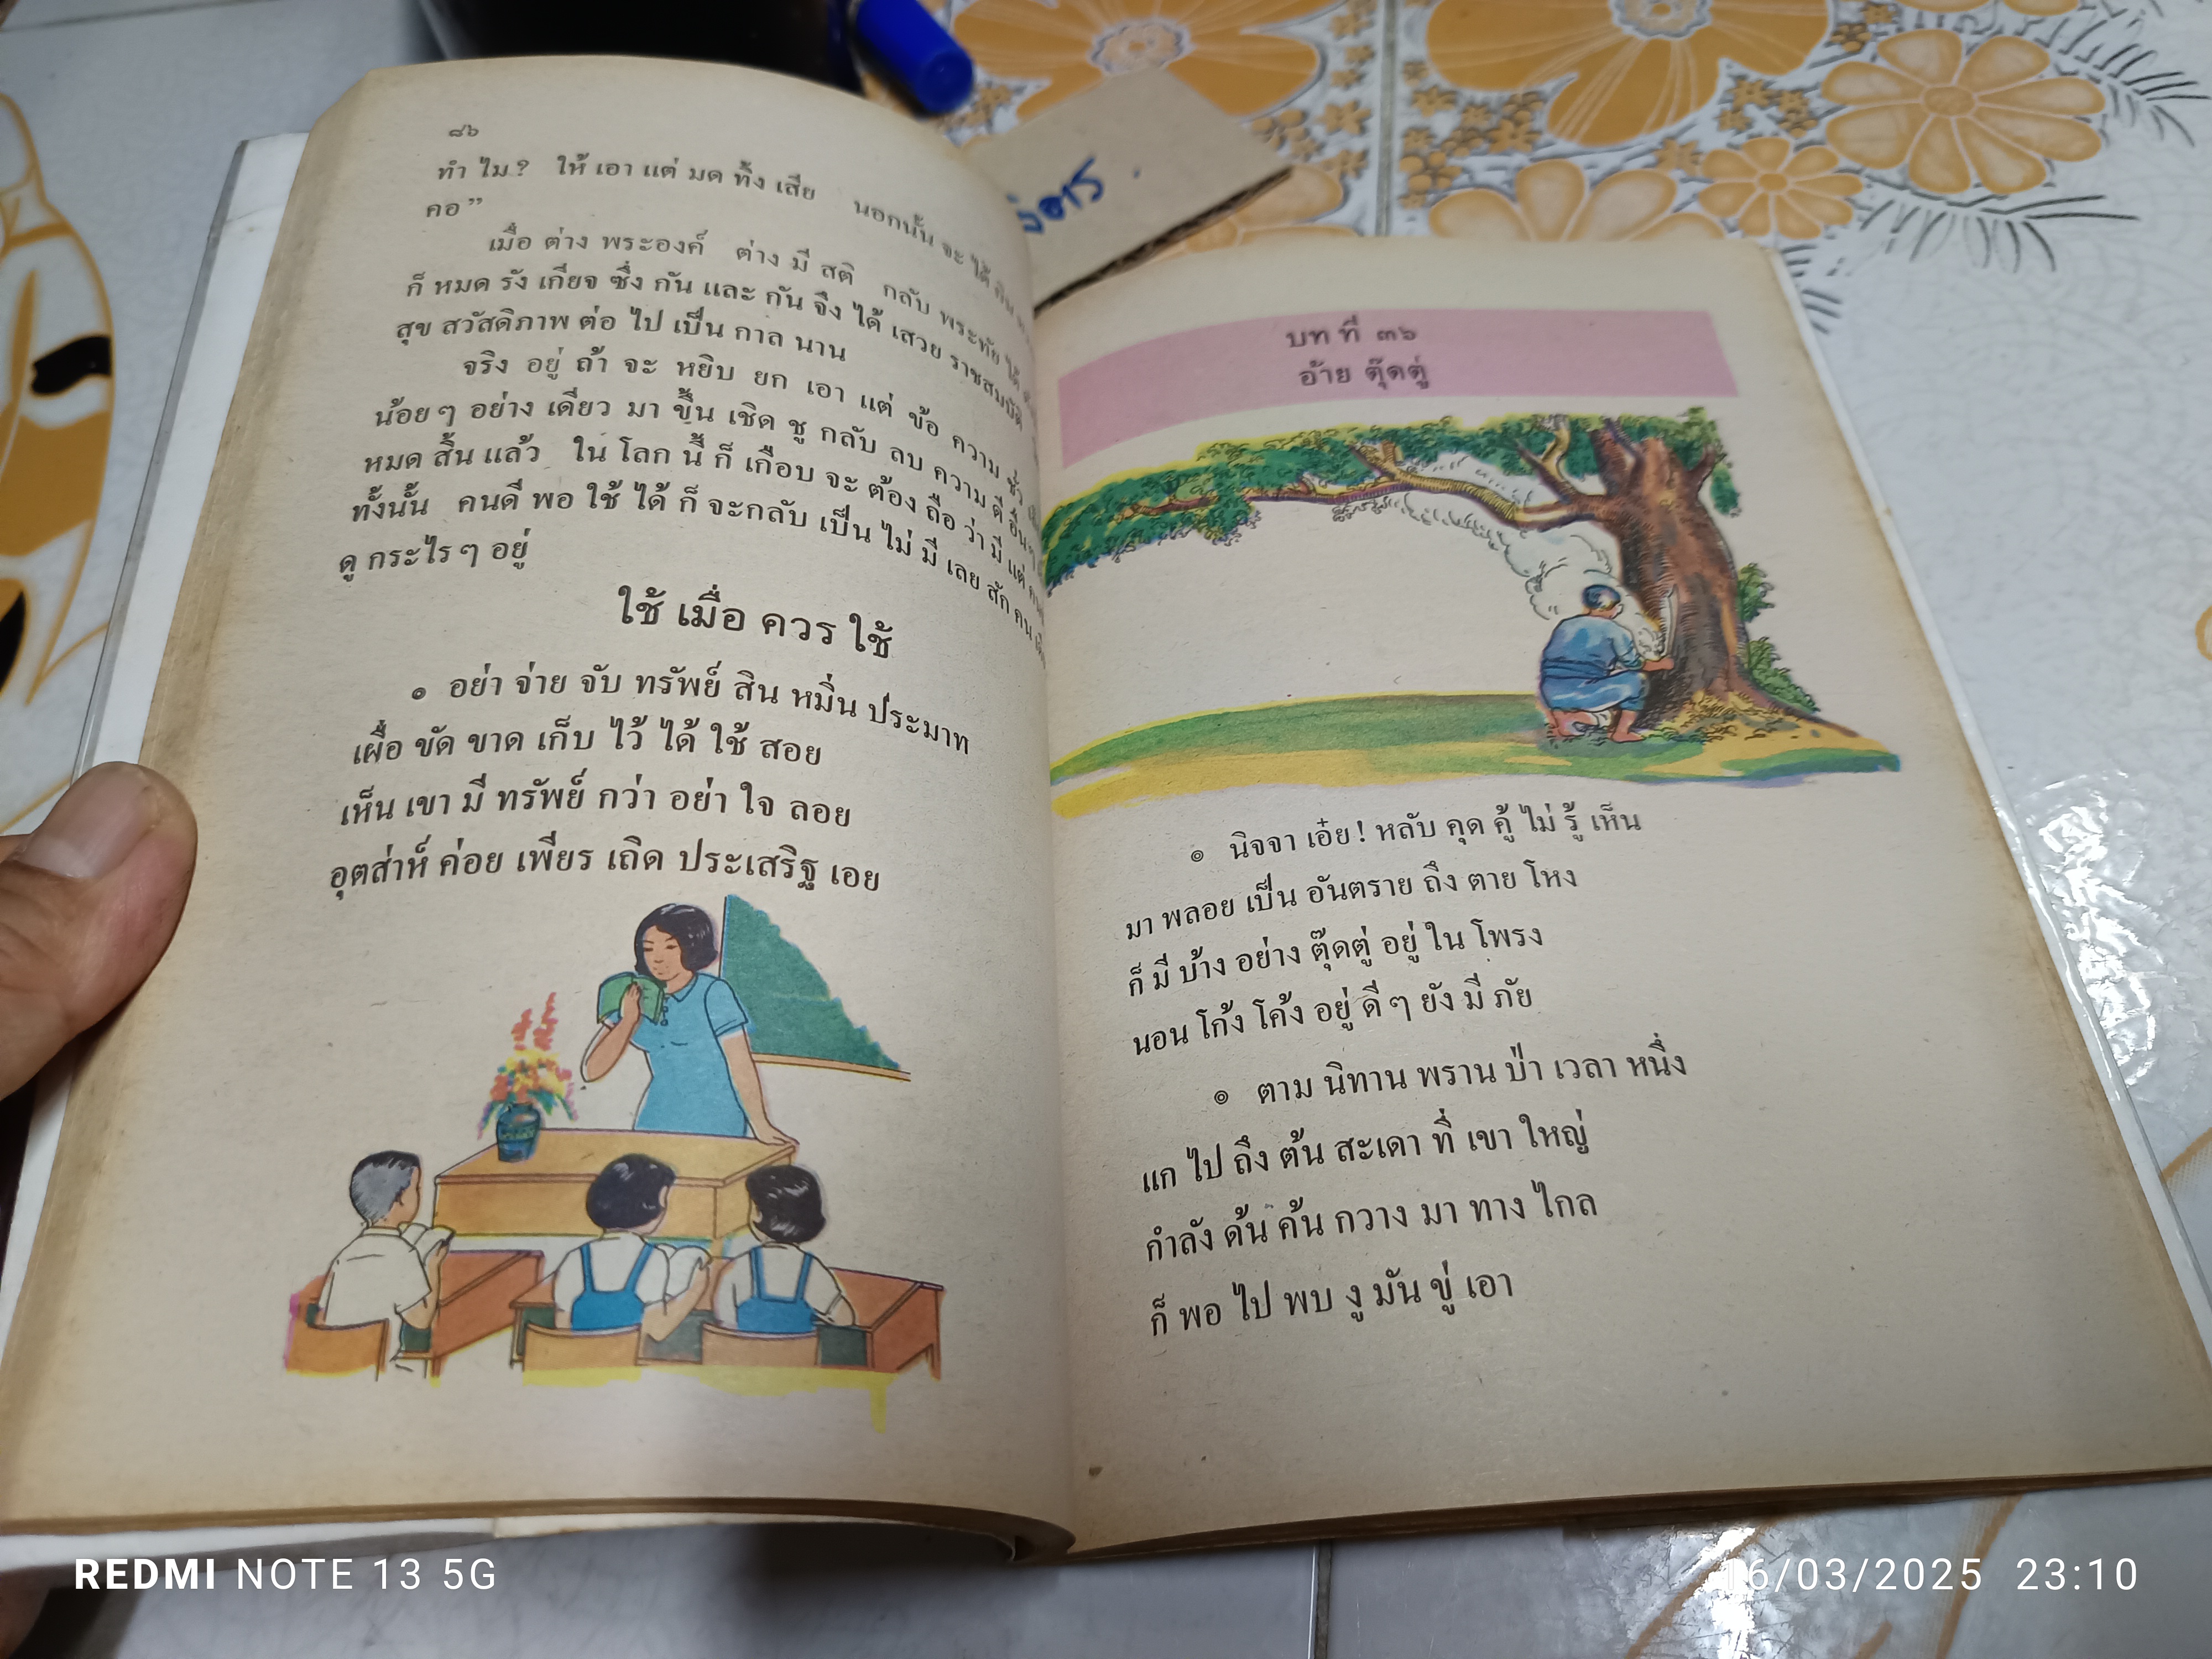 ๘๖
ทำ ไม ? ให้ เอา แต่ มด ทิ้ง เสีย นอกนั้น จะ ได้
คอ ”
เมื่อ ต่าง พระองค์ ต่าง มี สติ กลับ พระทัย ได้
ก็ หมด รัง เกียจ ซึ่ง กัน และ กัน จึง ได้ เสวย ราชสมบัติ
สุข สวัสดิภาพ ต่อ ไป เป็น กาล นาน
จริง อยู่ ถ้า จะ หยิบ ยก เอา แต่ ข้อ ความ ชั่ว
น้อย ๆ อย่าง เดียว มา ขึ้น เชิด ชู กลับ ลบ ความ ดี อื่น ๆ
หมด สิ้น แล้ว ใน โลก นี้ ก็ เกือบ จะ ต้อง ถือ ว่า มี แต่
ทั้งนั้น คนดี พอ ใช้ ได้ ก็ จะกลับ เป็น ไม่ มี เลย สัก คน
ดู กระไร ๆ อยู่
ใช้ เมื่อ ควร ใช้
๏ อย่า จ่าย จับ ทรัพย์ สิน หมิ่น ประมาท
เผื่อ ขัด ขาด เก็บ ไว้ ได้ ใช้ สอย
เห็น เขา มี ทรัพย์ กว่า อย่า ใจ ลอย
อุตส่าห์ ค่อย เพียร เถิด ประเสริฐ เอย
บท ที่ ๓๖
อ้าย ตุ๊ดตู่
๏ นิจจา เอ๋ย ! หลับ คุด คู้ ไม่ รู้ เห็น
มา พลอย เป็น อันตราย ถึง ตาย โหง
ก็ มี บ้าง อย่าง ตุ๊ดตู่ อยู่ ใน โพรง
นอน โก้ง โค้ง อยู่ ดี ๆ ยัง มี ภัย
๏ ตาม นิทาน พราน ป่า เวลา หนึ่ง
แก ไป ถึง ต้น สะเดา ที่ เขา ใหญ่
กำลัง ด้น ค้น กวาง มา ทาง ไกล
ก็ พอ ไป พบ งู มัน ขู่ เอา
REDMI NOTE 13 5G
16/03/2025 23:10